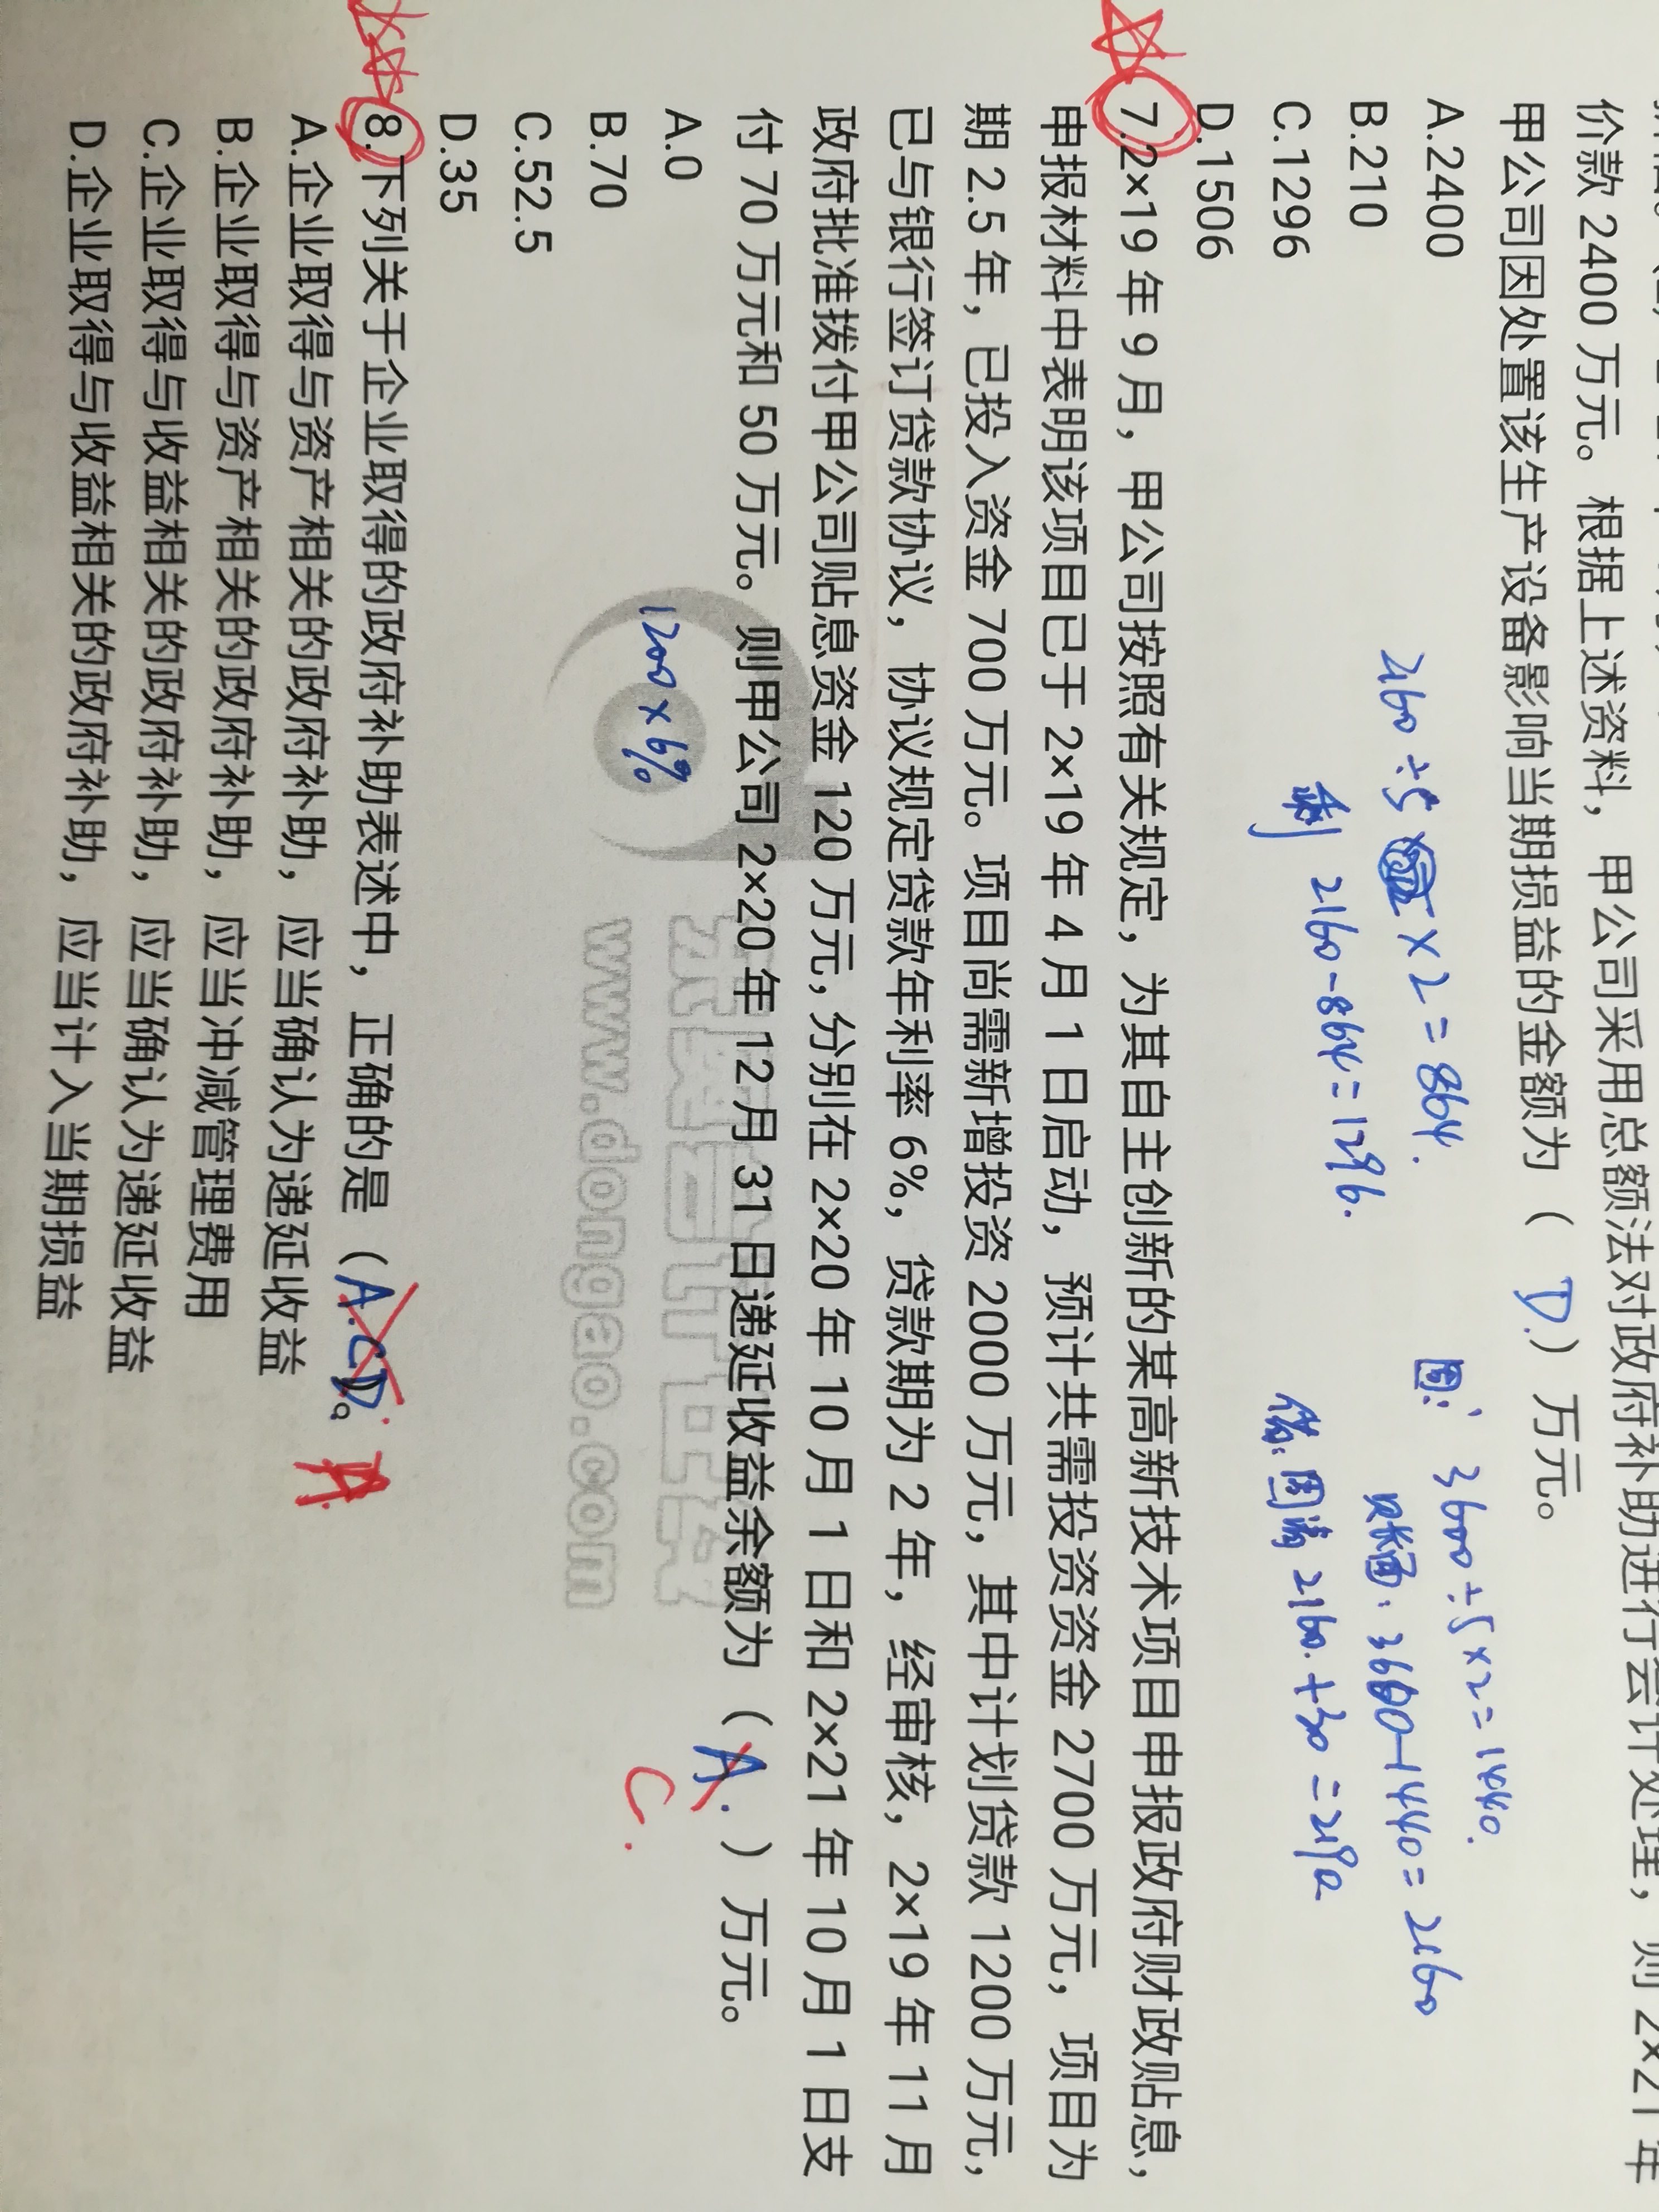 价款 2400 万元。根据上述资料，甲公司采用总额法对政府补助进行会计处理，则 2×21 年
甲公司因处置该生产设备影响当期损益的金额为（ D. ）万元。
A.2400
B.210
C.1296
D.1506
2160÷5×2=864.
剩 2160-864=1296.
固: 3600÷5×2=1440.
账面: 3600-1440=2160
借: 固清 2160.+30=2190
7.2×19 年 9 月，甲公司按照有关规定，为其自主创新的某高新技术项目申报政府财政贴息，
申报材料中表明该项目已于 2×19 年 4 月 1 日启动，预计共需投资资金 2700 万元，项目为
期 2.5 年，已投入资金 700 万元。项目尚需新增投资 2000 万元，其中计划贷款 1200 万元，
已与银行签订贷款协议，协议规定贷款年利率 6%，贷款期为 2 年，经审核，2×19 年 11 月
政府批准拨付甲公司贴息资金 120 万元，分别在 2×20 年 10 月 1 日和 2×21 年 10 月 1 日支
付 70 万元和 50 万元。则甲公司 2×20 年 12 月 31 日递延收益余额为（ A. ）万元。
C.
A.0
1200×6%
B.70
C.52.5
D.35
www.dongao.com
8.下列关于企业取得的政府补助表述中，正确的是（A.CD.）。
A.
A.企业取得与资产相关的政府补助，应当确认为递延收益
B.企业取得与资产相关的政府补助，应当冲减管理费用
C.企业取得与收益相关的政府补助，应当确认为递延收益
D.企业取得与收益相关的政府补助，应当计入当期损益